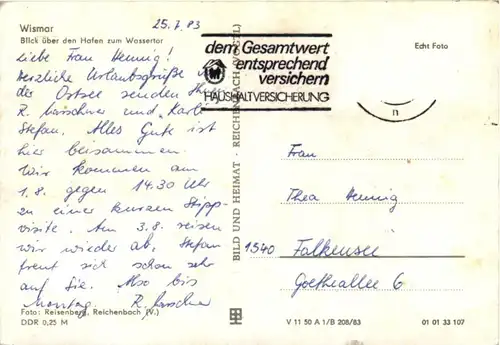 Wismar
Blick über den Hafen zum Wassertor
25.7.83
Liebe Frau Hennig!
Herzliche Urlaubsgrüße
der Ostsee senden
R. und
Stefan. Alles Gute ist
hier beisammen.
Wir kommen am
1.8. gegen 14.30 Uhr
zu einer kurzen Stipp
visite. Am 3.8. reisen
wir wieder ab. Stefan
freut sich schon sehr
auf Sie. Also bis
Montag. R.
Foto: Reisenberg, Reichenbach (V.)
DDR 0,25 M
BILD UND HEIMAT · REICHENBACH (VOGTL)
dem Gesamtwert
entsprechend
versichern
HAUSHALTVERSICHERUNG
Echt Foto
n
Frau
Thea Hennig
1540 Falkensee
Goetheallee 6
V 11 50 A 1/B 208/83
01 01 33 107